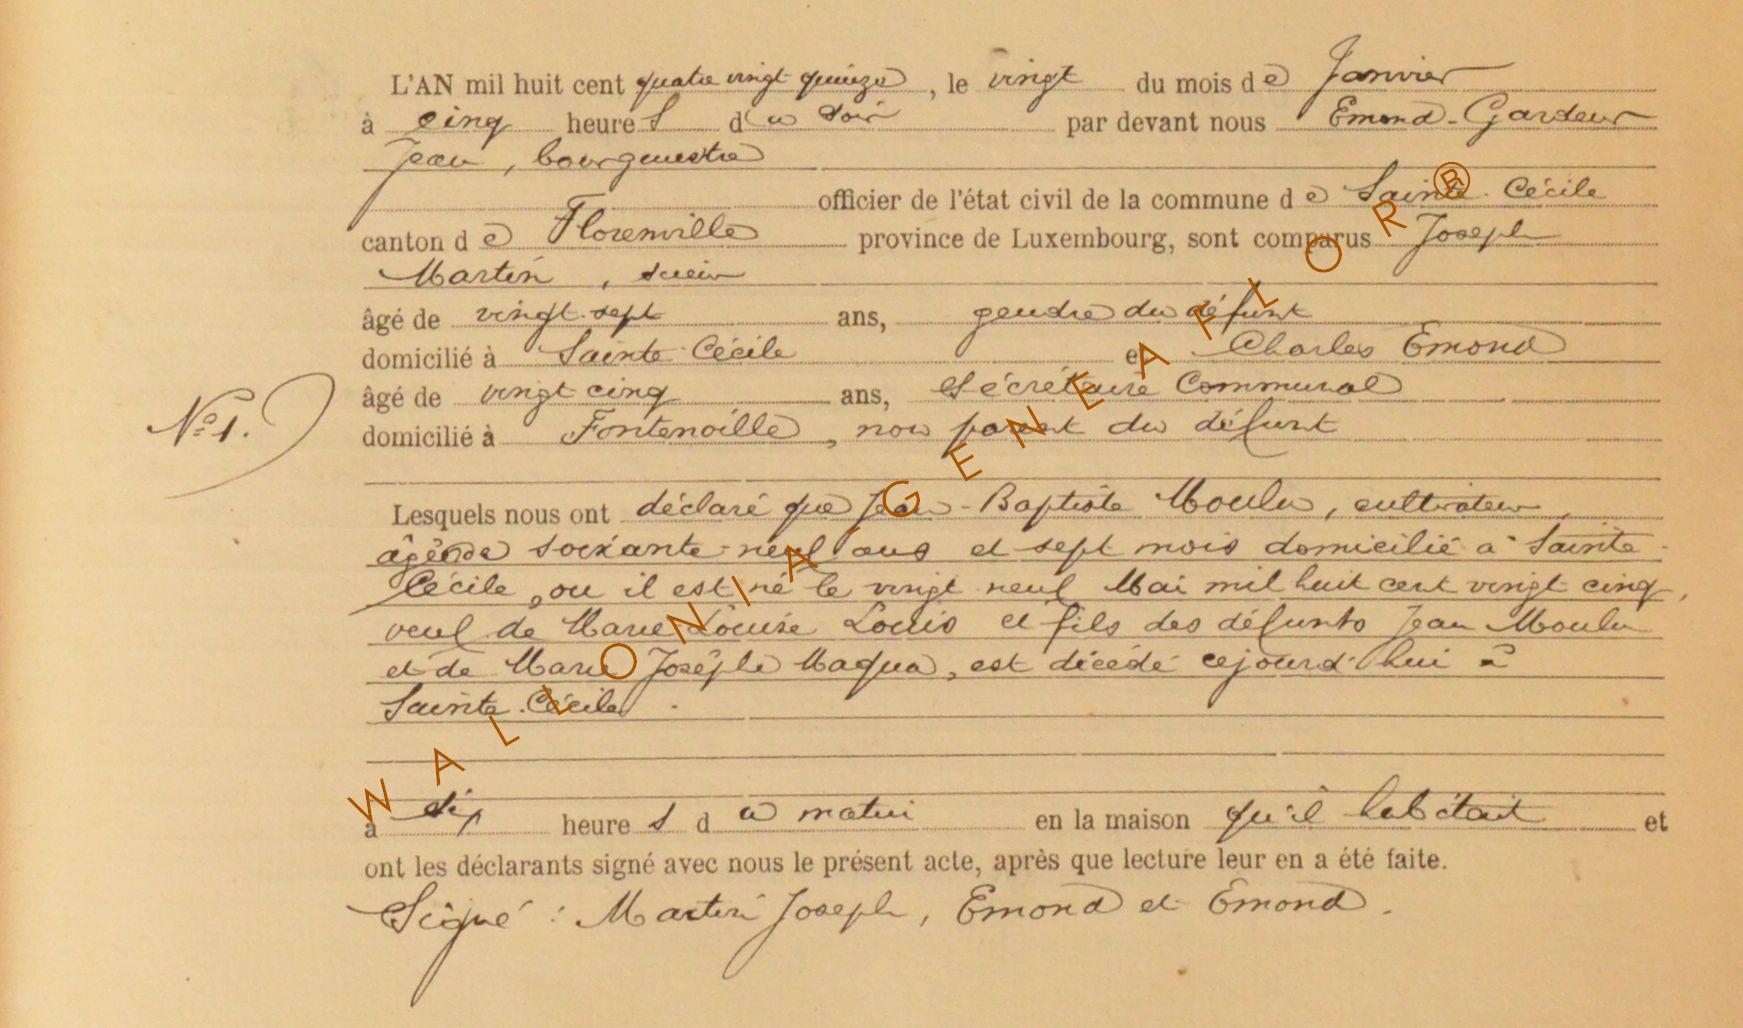 L'AN mil huit cent quatre vingt quinze, le vingt du mois de Janvier
à cinq heures du soir par devant nous Emond-Gardeur
Jean, bourgmestre
officier de l'état civil de la commune de Sainte-Cécile
canton de Florenville province de Luxembourg, sont comparus Joseph
Martin, scieur
âgé de vingt-sept ans, gendre du défunt
domicilié à Sainte-Cécile et Charles Emond
âgé de vingt cinq ans, Sécrétaire Communal
N° 1.
domicilié à Fontenoille, non parent du défunt
Lesquels nous ont déclaré que Jean-Baptiste Moulu, cultivateur,
âgé de soixante-neuf ans et sept mois domicilié à Sainte-
Cécile, ou il est né le vingt neuf Mai mil huit cent vingt cinq,
veuf de Marie Louise Louis et fils des défunts Jean Moulu
et de Marie Josèphe Maqua, est décédé cejourd'hui à
Sainte-Cécile.
à dix heures du matin en la maison qu'il habitait et
ont les déclarants signé avec nous le présent acte, après que lecture leur en a été faite.
Signé : Martin Joseph, Emond et Emond.
WALLONIA-GENEAFLOR®